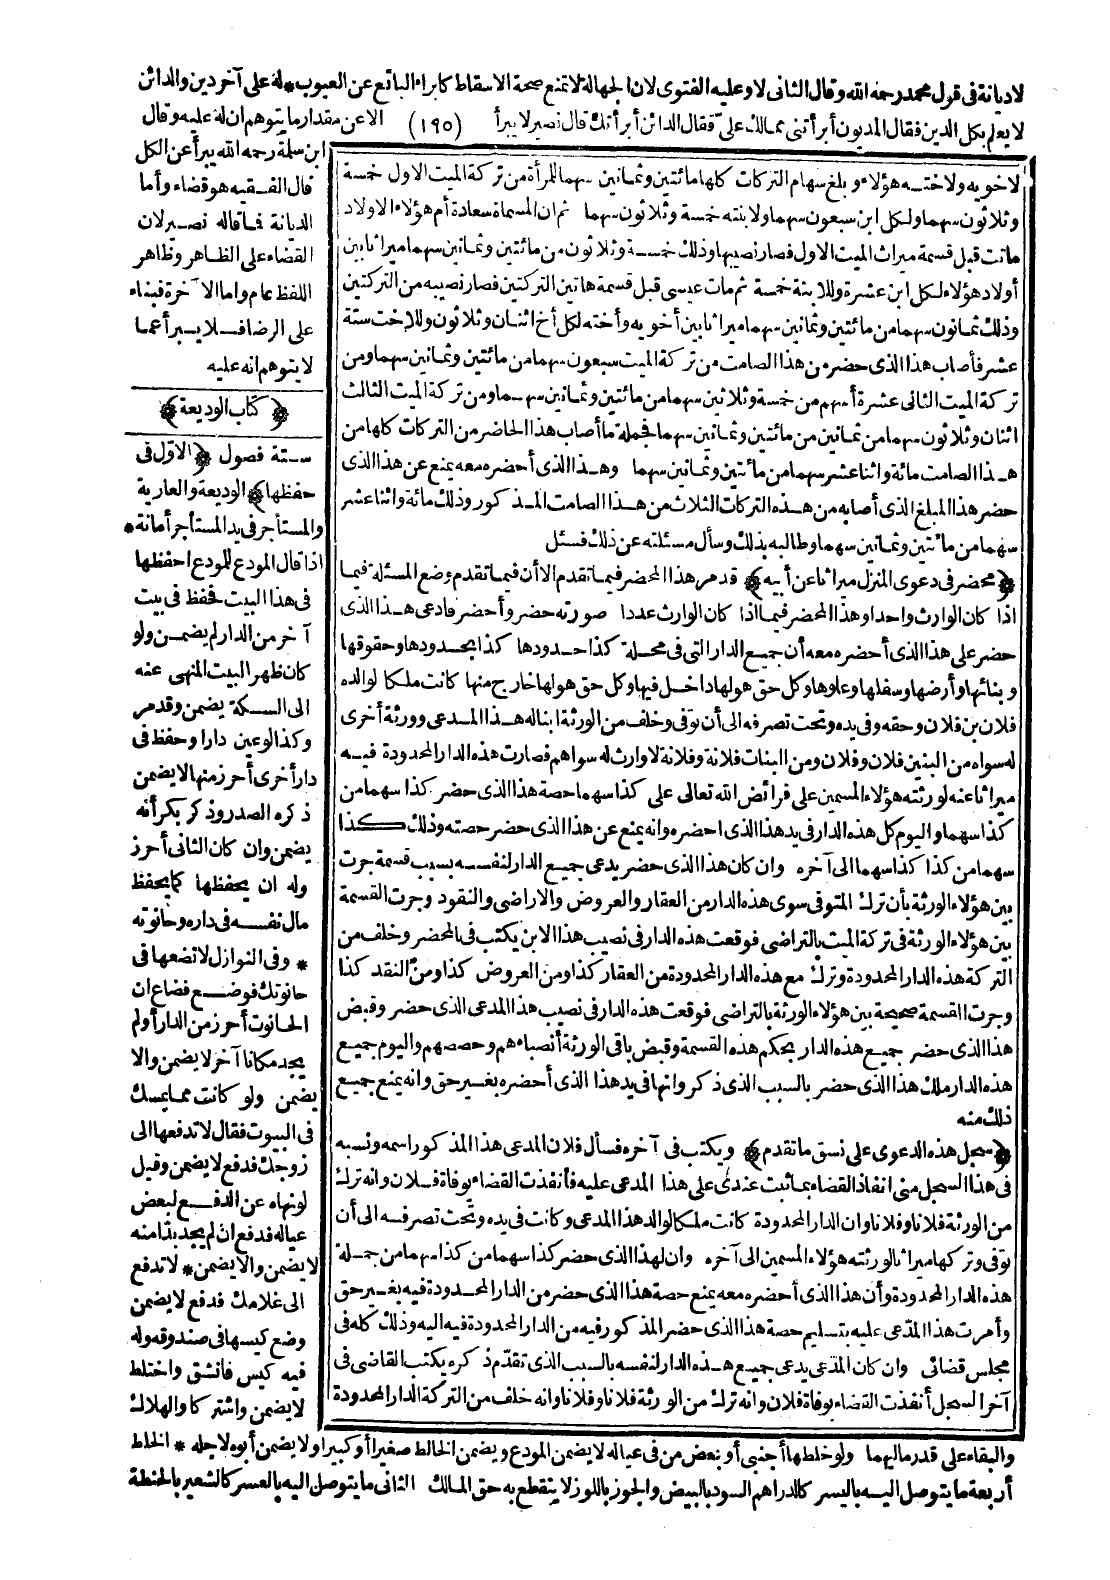 لاديانة فى قول محمد رحمه الله وقال الثانى لا وعليه الفتوى لان الجهالة لا تمنع صحة الاسقاط كابراء البائع عن العيوب * له على آخر دين والدائن
لا يعلم بكل الدين فقال المديون أبرأتنى ممالك علىّ فقال الدائن أبرأتك قال نصير لا يبرأ (١٩٥) الا عن مقدار ما يتوهم ان له عليه وقال
ابن سلمة رحمه الله يبرأ عن الكل
قال الفقيه هو قضاء وأما
الديانة فما قاله نصير لان
القضاء على الظاهر وظاهر
اللفظ عام واما الآخرة فبناء
على الرضا فلا يبرأ عما
لا يتوهم انه عليه
﴿ كتاب الوديعة ﴾
ستة فصول ﴿ الاوّل فى
حفظها ﴾ الوديعة والعارية
والمستأجر فى يد المستأجر أمانة *
اذا قال المودع للمودع احفظها
فى هذا البيت فحفظ فى بيت
آخر من الدار لم يضمن ولو
كان ظهر البيت المنهى عنه
الى السكة يضمن وقد مر
وكذا لو عين دارا وحفظ فى
دار أخرى أحرز منها لا يضمن
ذكره الصدر وذكر بكر أنه
يضمن وان كان الثانى أحرز
وله ان يحفظها كما يحفظ
مال نفسه فى داره وحانوته
* وفى النوازل لا تضعها فى
حانوتك فوضع فضاع ان
الحانوت أحرز من الدار أو لم
يجد مكانا آخر لا يضمن والا
يضمن ولو كانت مما يمسك
فى البيوت فقال لا تدفعها الى
زوجك فدفع لا يضمن وقيل
لو نهاه عن الدفع لبعض
عياله فدفع ان لم يجد بدّا منه
لا يضمن والا يضمن * لا تدفع
الى غلامك فدفع لا يضمن
وضع كيسها فى صندوقه وله
فيه كيس فانشق واختلط
لا يضمن واشتركا والهلاك
لاخويه ولاخته هؤلاء وبلغ سهام التركات كلها مائتين وثمانين سهما للمرأة من تركة الميت الاول خمسة
وثلاثون سهما ولكل ابن سبعون سهما ولابنته خمسة وثلاثون سهما ثم ان المسماة سعادة أم هؤلاء الاولاد
ماتت قبل قسمة ميراث الميت الاول فصار نصيبها وذلك خمسة وثلاثون من مائتين وثمانين سهما ميراثا بين
أولاد هؤلاء لكل ابن عشرة وللابنة خمسة ثم مات عيسى قبل قسمة هاتين التركتين فصار نصيبه من التركتين
وذلك ثمانون سهما من مائتين وثمانين سهما ميراثا بين أخويه وأخته لكل أخ اثنان وثلاثون وللاخت ستة
عشر فأصاب هذا الذى حضر من هذا الصامت من تركة الميت سبعون سهما من مائتين وثمانين سهما ومن
تركة الميت الثانى عشرة أسهم من خمسة وثلاثين سهما من مائتين وثمانين سهما ومن تركة الميت الثالث
اثنان وثلاثون سهما من ثمانين من مائتين وثمانين سهما فجملة ما أصاب هذا الحاضر من التركات كلها من
هذا الصامت مائة واثنا عشر سهما من مائتين وثمانين سهما وهذا الذى أحضره معه يمنع عن هذا الذى
حضر هذا المبلغ الذى أصابه من هذه التركات الثلاث من هذا الصامت المذكور وذلك مائة واثنا عشر
سهما من مائتين وثمانين سهما وطالبه بذلك وسأل مسئلته عن ذلك فسئل
﴿ محضر فى دعوى المنزل ميراثا عن أبيه ﴾ قد مر هذا المحضر فيما تقدم الا أن فيما تقدم وضع المسئلة فيما
اذا كان الوارث واحدا وهذا المحضر فيما اذا كان الوارث عددا صورته حضر وأحضر فادعى هذا الذى
حضر على هذا الذى أحضره معه أن جميع الدار التى فى محلة كذا حدودها كذا بحدودها وحقوقها
وبنائها وأرضها وسفلها وعلوها وكل حق هو لها داخل فيها وكل حق هو لها خارج منها كانت ملكا لوالده
فلان بن فلان وحقه وفى يده وتحت تصرفه الى أن توفى وخلف من الورثة ابنا له هذا المدعى وورثة أخرى
له سواه من البنين فلان وفلان ومن البنات فلانة وفلانة لا وارث له سواهم فصارت هذه الدار المحدودة فيه
ميراثا عنه لورثته هؤلاء المسمين على فرائض الله تعالى على كذا سهما حصة هذا الذى حضر كذا سهما من
كذا سهما واليوم كل هذه الدار فى يد هذا الذى احضره وانه يمنع عن هذا الذى حضر حصته وذلك كذا
سهما من كذا كذا سهما الى آخره وان كان هذا الذى حضر يدعى جميع الدار لنفسه بسبب قسمة جرت
بين هؤلاء الورثة بأن ترك المتوفى سوى هذه الدار من العقار والعروض والاراضى والنقود وجرت القسمة
بين هؤلاء الورثة فى تركة الميت بالتراضى فوقعت هذه الدار فى نصيب هذا الابن يكتب فى المحضر وخلف من
التركة هذه الدار المحدودة وترك مع هذه الدار المحدودة من العقار كذا ومن العروض كذا ومن النقد كذا
وجرت القسمة صحيحة بين هؤلاء الورثة بالتراضى فوقعت هذه الدار فى نصيب هذا المدعى الذى حضر وقبض
هذا الذى حضر جميع هذه الدار بحكم هذه القسمة وقبض باقى الورثة أنصباءهم وحصصهم واليوم جميع
هذه الدار ملك هذا الذى حضر بالسبب الذى ذكر وانها فى يد هذا الذى أحضره بغير حق وانه يمنع جميع
ذلك منه
﴿ سجل هذه الدعوى على نسق ما تقدم ﴾ ويكتب فى آخره فسأل فلان المدعى هذا المذكور اسمه ونسبه
فى هذا السجل منى انفاذ القضاء بما ثبت عندى على هذا المدعى عليه فأنفذت القضاء بوفاة فلان وانه ترك
من الورثة فلانا وفلانا وان الدار المحدودة كانت ملكا لوالد هذا المدعى وكانت فى يده وتحت تصرفه الى أن
توفى وتركها ميراثا لورثته هؤلاء المسمين الى آخره وان لهذا الذى حضر كذا سهما من كذا سهما من جملة
هذه الدار المحدودة وأن هذا الذى أحضره معه يمنع حصة هذا الذى حضر من الدار المحدودة فيه بغير حق
وأمرت هذا المدّعى عليه بتسليم حصة هذا الذى حضر المذكور فيه من الدار المحدودة فيه اليه وذلك كله فى
مجلس قضائى وان كان المدّعى يدعى جميع هذه الدار لنفسه بالسبب الذى تقدّم ذكره يكتب القاضى فى
آخر السجل أنفذت القضاء بوفاة فلان وانه ترك من الورثة فلانا وفلانا وانه خلف من التركة الدار المحدودة
والبقاء على قدر ماليهما ولو خلطها أجنبى أو بعض من فى عياله لا يضمن المودع ويضمن الخالط صغيرا أو كبيرا ولا يضمن أبوه لاجله * الخلط
أربعة ما يتوصل اليه باليسر كالدراهم السود بالبيض والجوز باللوز لا ينقطع به حق المالك الثانى ما يتوصل اليه بالعسر كالشعير بالحنطة